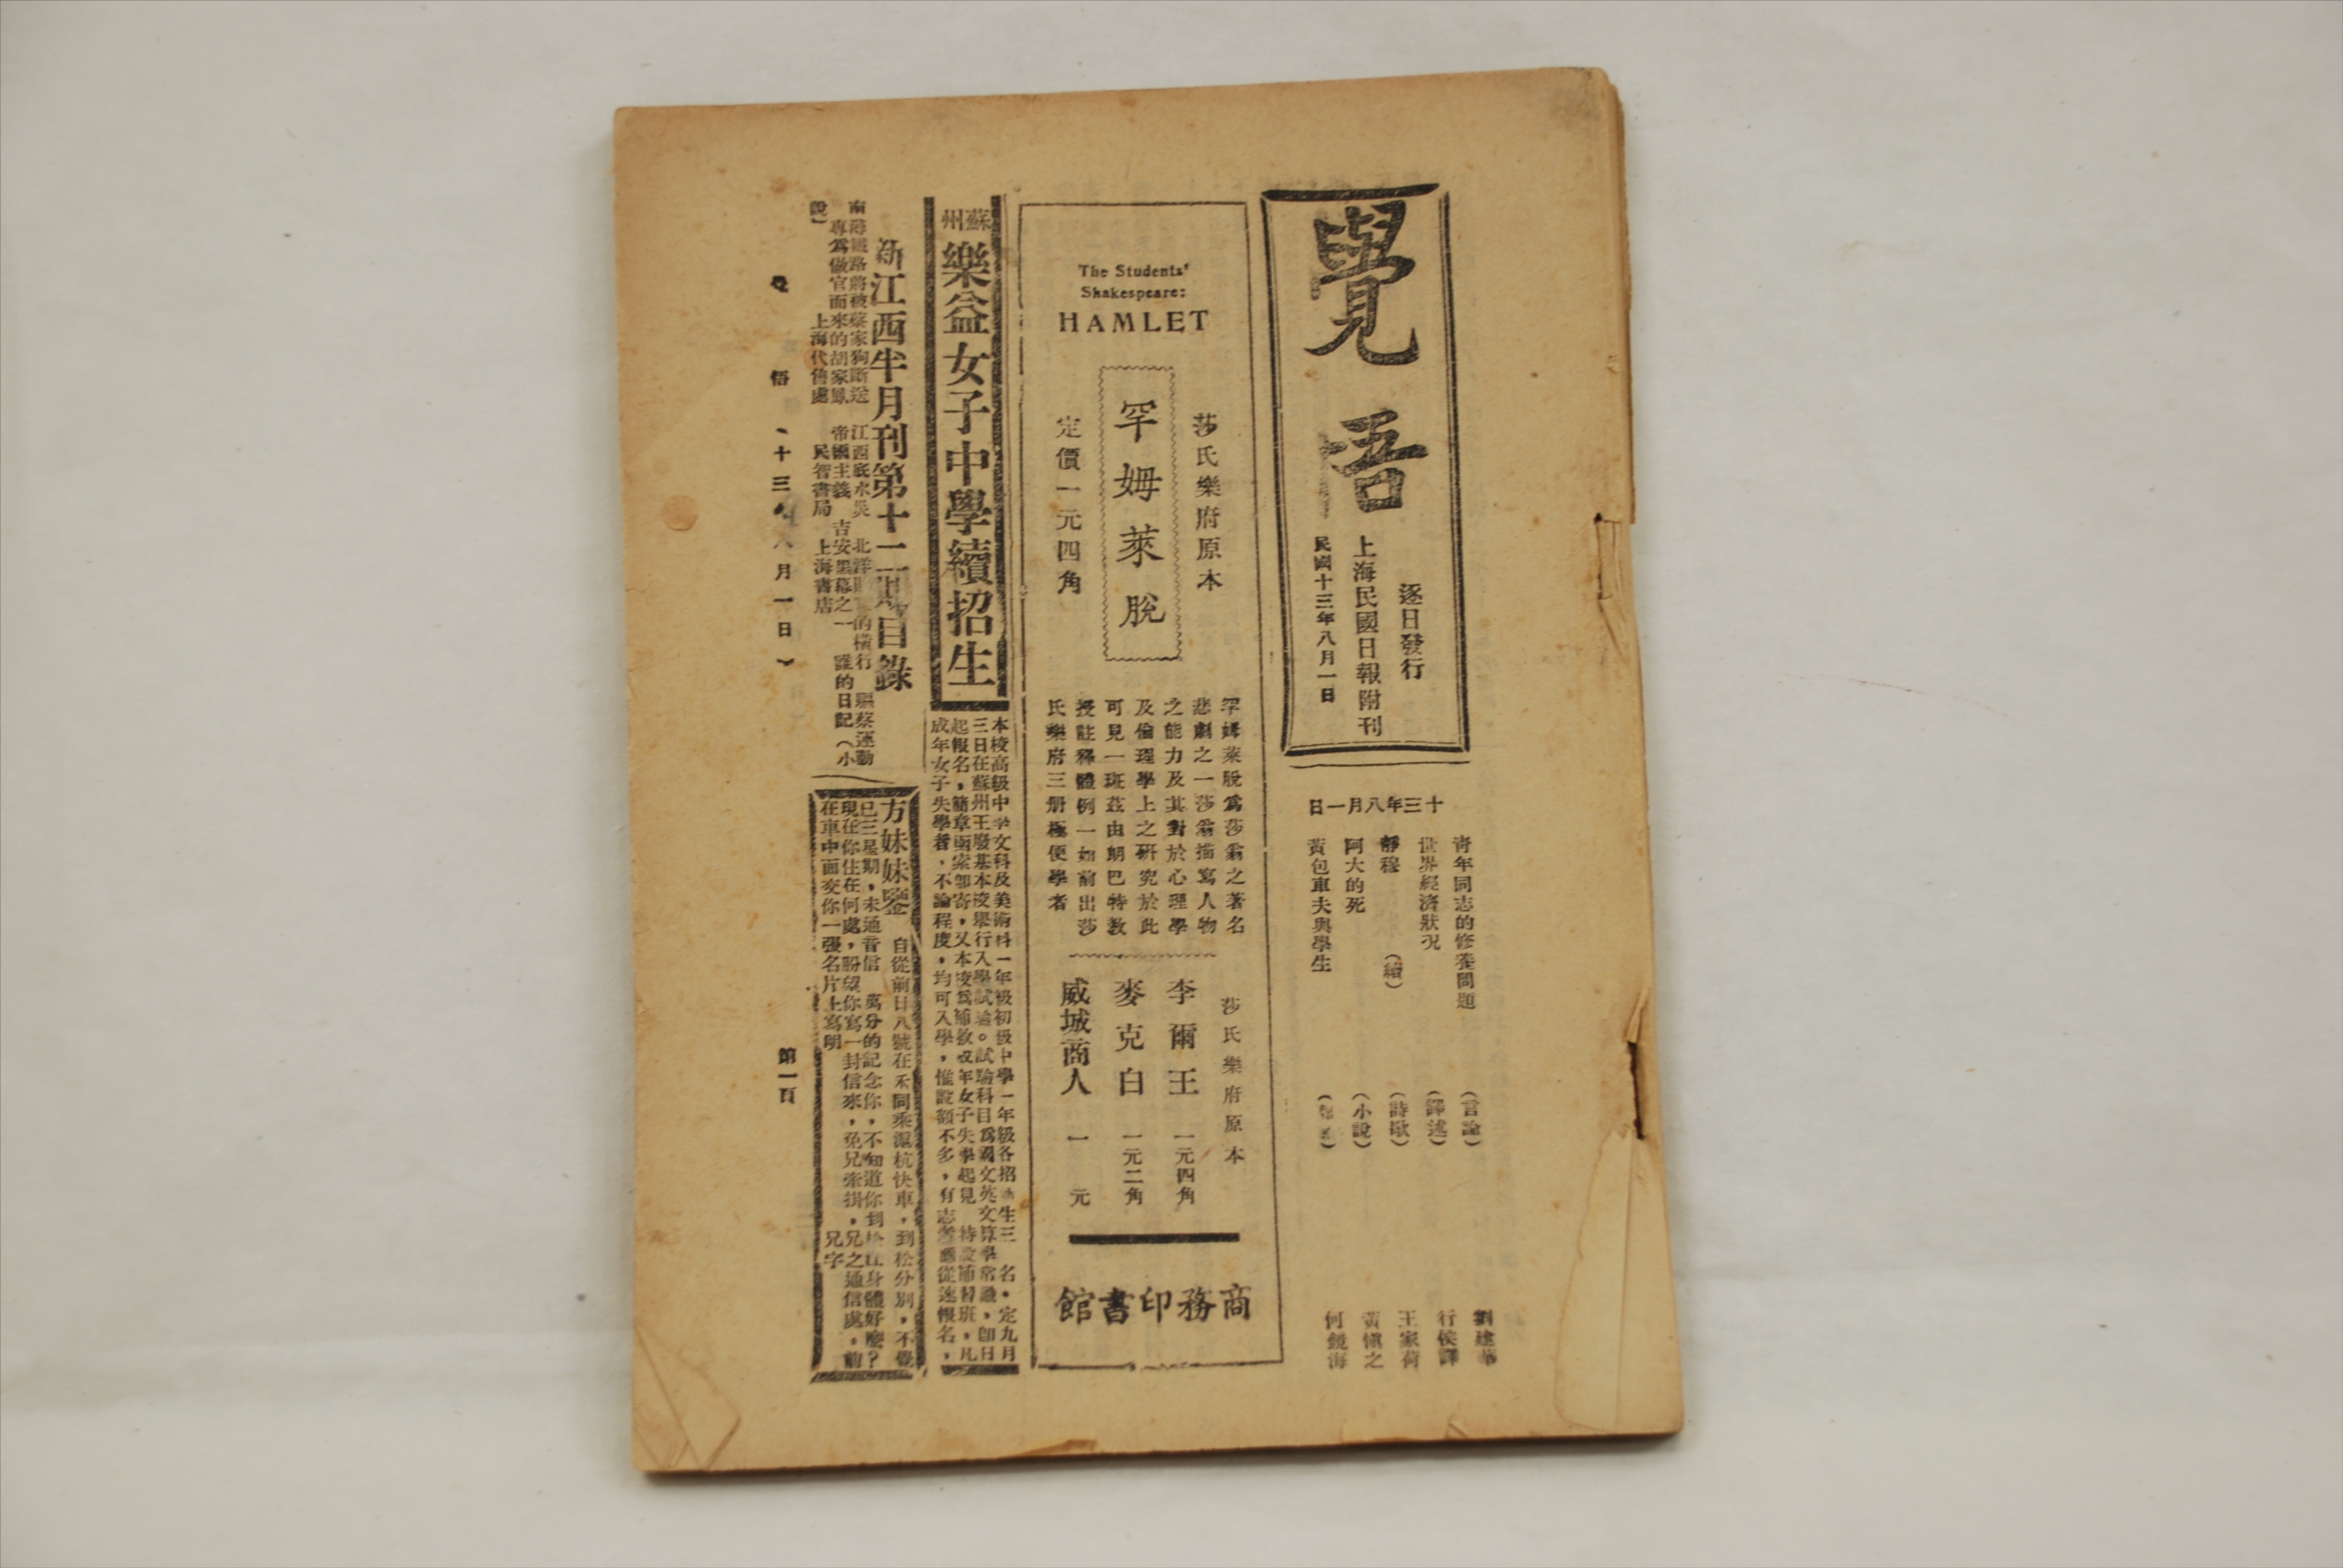 覺悟
逐日發行
上海民國日報附刊
民國十三年八月一日
十三年八月一日
青年同志的修養問題
(言論)
劉建華
世界經濟狀況
(譯述)
行侯譯
靜穆
(續)
(詩歌)
王家荷
阿大的死
(小說)
黃愼之
黃包車夫與學生
何鏡海
The Students'
Shakespeare:
HAMLET
莎氏樂府原本
罕姆萊脫
定價一元四角
罕姆萊脫爲莎翁之著名
悲劇之一莎翁描寫人物
之能力及其對於心理學
及倫理學上之研究於此
可見一斑茲由朗巴特教
授註釋體例一如前出莎
氏樂府三册極便學者
莎氏樂府原本
李爾王 一元四角
麥克白 一元二角
威城商人 一元
商務印書館
蘇州
樂益女子中學續招生
本校高級中學文科及美術科一年級初級中學一年級各招生三名。定九月
三日在蘇州王廢基本校舉行入學試驗。試驗科目爲國文英文算學常識，卽日
起報名，簡章函索卽寄，又本校爲補救成年女子失學起見 特設補習班，凡
成年女子失學者，不論程度，均可入學，惟設額不多，有志者應從速報名，
新江西半月刊第十一期目錄
南潯鐵路將被蔡家狗斷送 江西底水災 北洋的橫行 驅蔡運動
專爲做官而來的胡家鳳 帝國主義 吉安黑幕之一 誰的日記（小
說） 上海代售處 民智書局 上海書店
方妹妹鑒
自從前日八號在禾同乘滬杭快車，到松分別，不覺
已三星期，未通音信 萬分的記念你，不知道你到松江身體好麼？
現在你住在何處，盼望你寫一封信來，免兄牽掛。兄之通信處，前
在車中面交你一張名片上寫明 兄字
悟
十三
月一日
第一頁